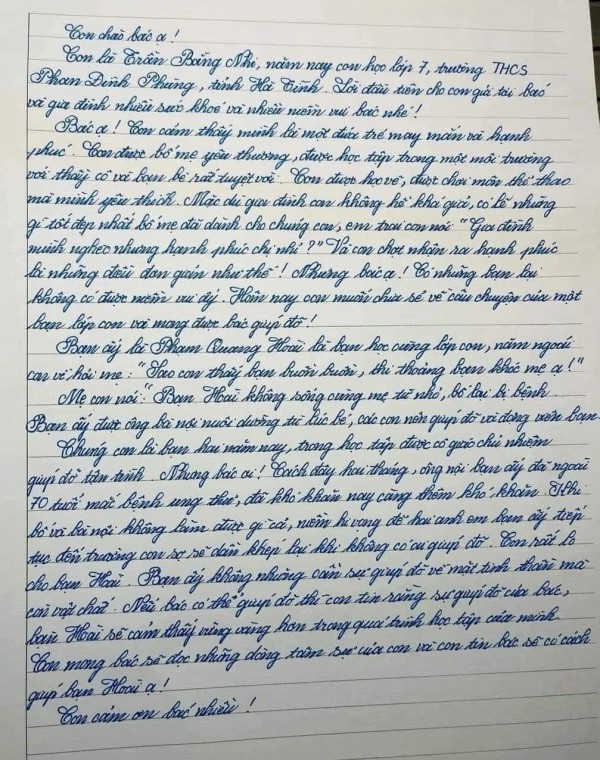 Con chào bác ạ!
Con là Trần Băng Nhi, năm nay con học lớp 7, trường THCS
Phan Đình Phùng, tỉnh Hà Tĩnh. Lời đầu tiên cho con gửi tới bác
và gia đình nhiều sức khoẻ và nhiều niềm vui bác nhé!
Bác ạ! Con cảm thấy mình là một đứa trẻ may mắn và hạnh
phúc. Con được bố mẹ yêu thương, được học tập trong một môi trường
với thầy cô và bạn bè rất tuyệt vời. Con được học vẽ, được chơi môn thể thao
mà mình yêu thích. Mặc dù gia đình con không hề khá giả, có lẽ những
gì tốt đẹp nhất bố mẹ đã dành cho chúng con, em trai con nói: "Gia đình
mình nghèo nhưng hạnh phúc chị nhỉ?" Và con chợt nhận ra hạnh phúc
là những điều đơn giản như thế! Nhưng bác ạ! Có những bạn lại
không có được niềm vui ấy. Hôm nay con muốn chia sẻ về câu chuyện của một
bạn lớp con và mong được bác giúp đỡ!
Bạn ấy là Phạm Quang Hoài là bạn học cùng lớp con, năm ngoái
con về hỏi mẹ: "Sao con thấy bạn buồn buồn, thi thoảng bạn khóc mẹ ạ!"
Mẹ con nói: "Bạn Hoài không sống cùng mẹ từ nhỏ, bố lại bị bệnh.
Bạn ấy được ông bà nội nuôi dưỡng từ lúc bé, các con nên giúp đỡ và động viên bạn.
Chúng con là bạn hai năm nay, trong học tập được cô giáo chủ nhiệm
giúp đỡ tận tình. Nhưng bác ơi! Cách đây hai tháng, ông nội bạn ấy đã ngoài
70 tuổi mắc bệnh ung thư, đã khó khăn nay càng thêm khó khăn. Khi
bố và bà nội không làm được gì cả, niềm hi vọng để hai anh em bạn ấy tiếp
tục đến trường con sợ sẽ dần khép lại khi không có ai giúp đỡ. Con rất lo
cho bạn Hoài. Bạn ấy không những cần sự giúp đỡ về mặt tinh thần mà
cần vật chất. Nếu bác có thể giúp đỡ thì con tin rằng sự giúp đỡ của bác,
bạn Hoài sẽ cảm thấy vững vàng hơn trong quá trình học tập của mình.
Con mong bác sẽ đọc những dòng tâm sự của con và con tin bác sẽ có cách
giúp bạn Hoài ạ!
Con cảm ơn bác nhiều!